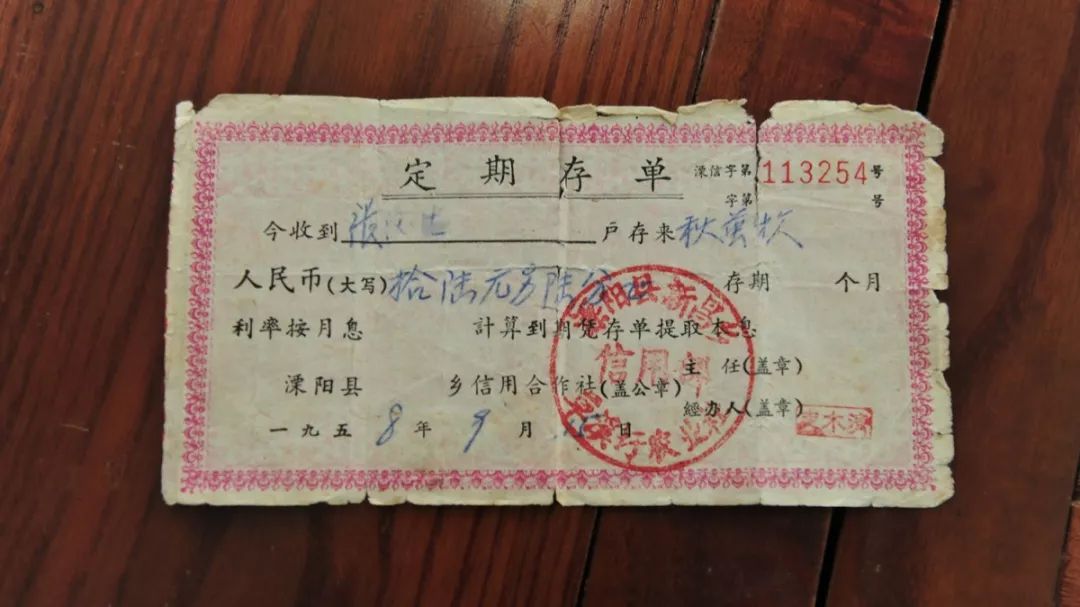 定期存单
溧信字第113254号
字第 号
今收到 张 户存来
人民币(大写)拾陆元另陆分 存期 个月
利率按月息 計算到期凭存单提取本息
主 任(盖章)
溧阳县 乡信用合作社(盖公章)
經办人(盖章)
一九五8年9月 日
溧阳县新昌
信用部
农业社